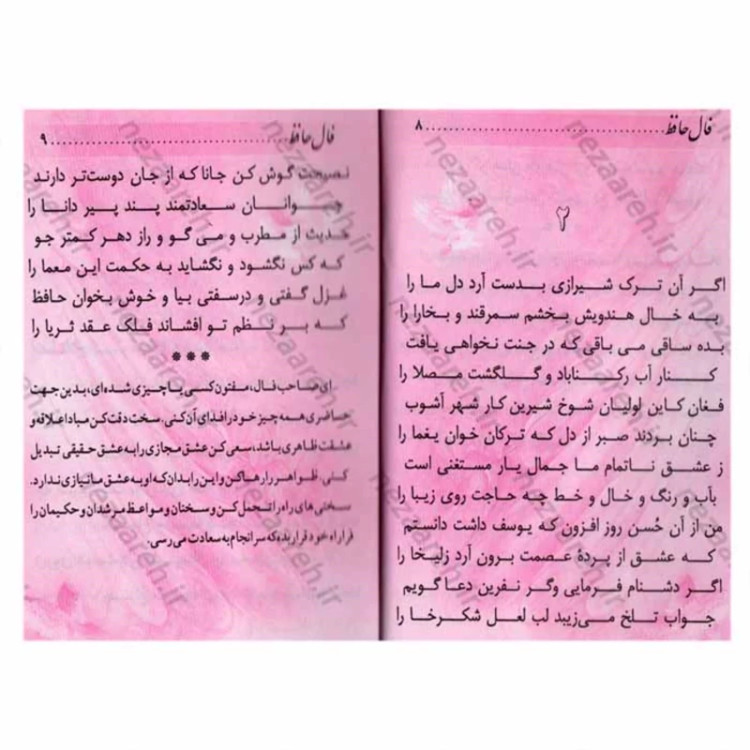 فال حافظ ........................................ ۸
۲
اگر آن ترک شیرازی بدست آرد دل ما را
به خال هندویش بخشم سمرقند و بخارا را
بده ساقی می باقی که در جنت نخواهی یافت
کنار آب رکناباد و گلگشت مصلا را
فغان کاین لولیان شوخ شیرین کار شهر آشوب
چنان بردند صبر از دل که ترکان خوان یغما را
ز عشق ناتمام ما جمال یار مستغنی است
بآب و رنگ و خال و خط چه حاجت روی زیبا را
من از آن حُسن روز افزون که یوسف داشت دانستم
که عشق از پردهٔ عصمت برون آرد زلیخا را
اگر دشنام فرمایی وگر نفرین دعا گویم
جواب تلخ می‌زیبد لب لعل شکرخا را
فال حافظ ........................................ ۹
نصیحت گوش کن جانا که از جان دوست‌تر دارند
جوانان سعادتمند پند پیر دانا را
حدیث از مطرب و می گو و راز دهر کمتر جو
که کس نگشود و نگشاید به حکمت این معما را
غزل گفتی و درسفتی بیا و خوش بخوان حافظ
که بر نظم تو افشاند فلک عقد ثریا را
***
ای صاحب فال، مفتون کسی یا چیزی شده‌ای، بدین جهت
حاضری همه چیز خود را فدای آن کنی، سخت دقت کن مبادا علاقه و
عشقت ظاهری باشد، سعی کن عشق مجازی را به عشق حقیقی تبدیل
کنی. ظواهر را رها کن و این را بدان که او به عشق ما نیازی ندارد.
سختی های راه را تحمل کن و سخنان و مواعظ مرشدان و حکیمان را
فرا راه خود قرار بده که سرانجام به سعادت می رسی.
nezaareh.ir
nezaareh.ir
nezaareh.ir
nezaareh.ir
nezaareh.ir
nezaareh.ir